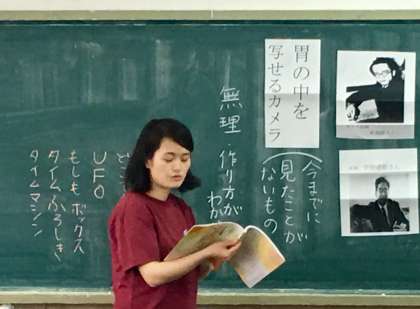 胃の中を
写せるカメラ
今までに
見たことが
ないもの
無理 作り方が
わか
UFO
もしもボックス
タイムふろしき
タイムマシン